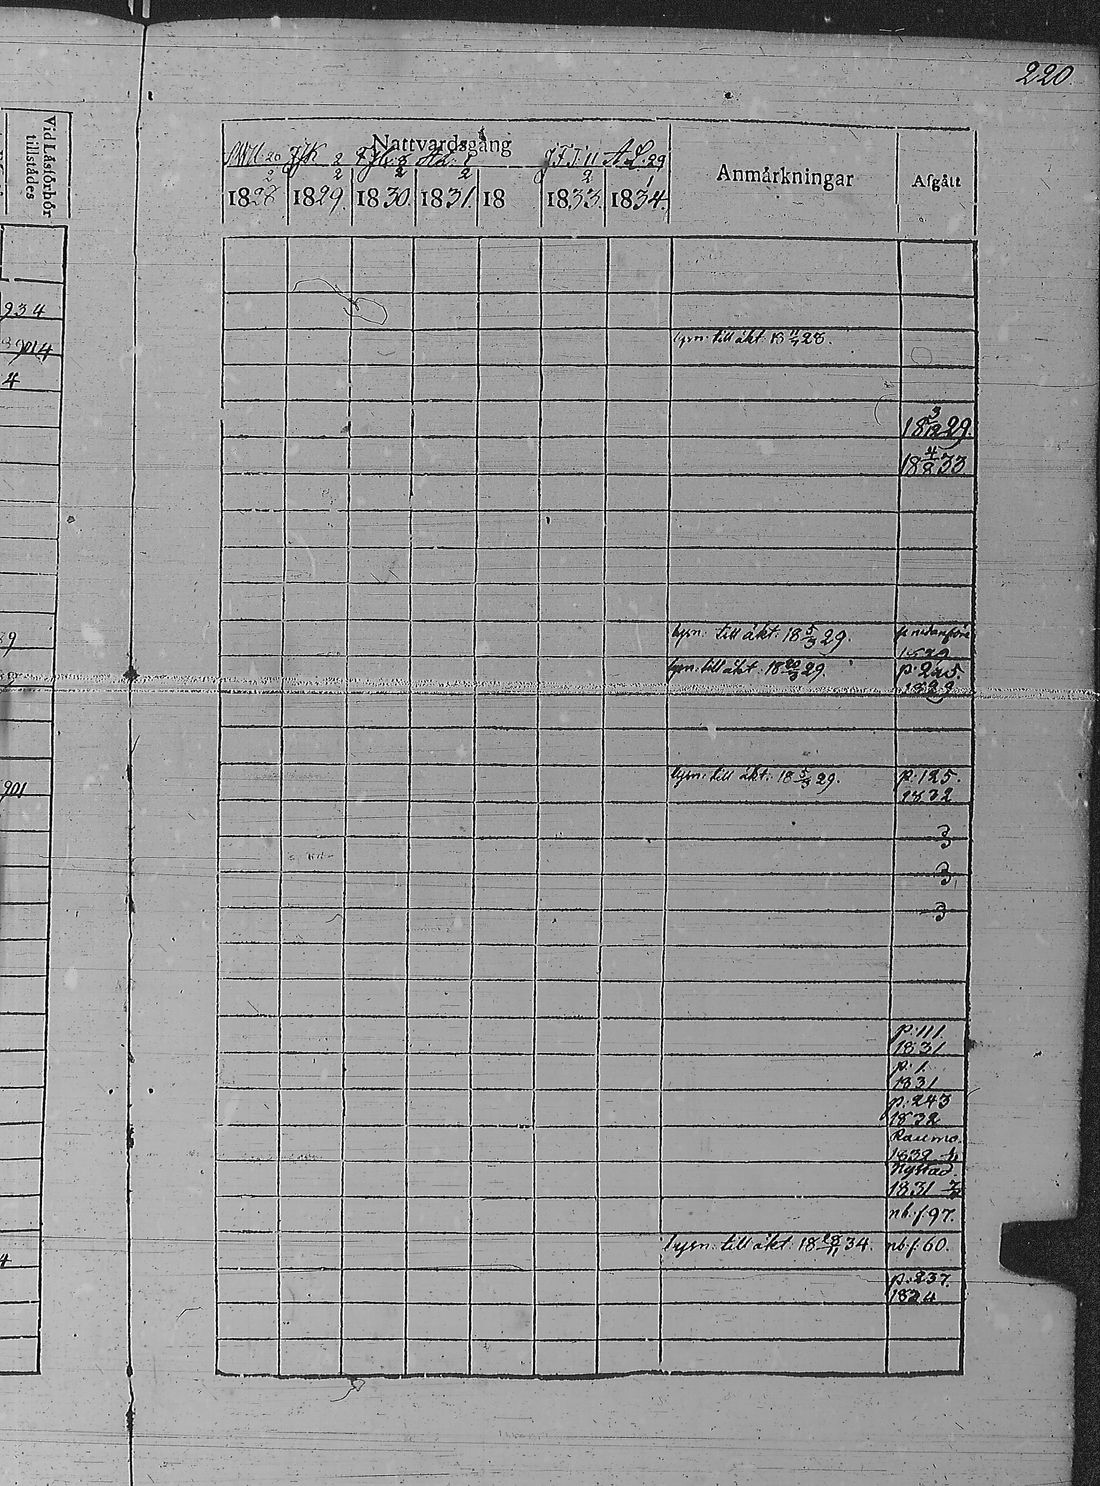 220
Vid Läsförhör
tillstädes
Nattvardsgång
Anmärkningar
Afgått
20/2 2/2 8/2 11/2 A.L. 29/1
1828 1829. 1830. 1831. 18 1833. 1834.
934
014
4
lysn. till äkt. 18 28.
18 3/12 29.
18 4/8 33
lysn. till äkt. 18 5/3 29. nedanföre
89
1829
lysn. till äkt. 18 20/3 29. p. 225.
1829
lysn. till äkt. 18 5/3 29. p. 125.
901
1832
3
3
3
p. 111
1831
p. 1
1831
p. 243
1832
Raumo
1832
Nystad
1831
nb. f. 97.
lysn. till äkt. 18 23/11 34. nb f. 60.
4
p. 237.